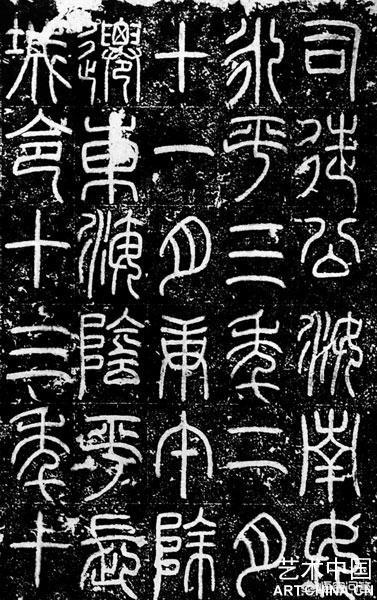 司徒公汝南女
永平三年二月
十一月庚午除
遷東海陰平長
城令十三年十
艺术中国
ART.CHINA.CN